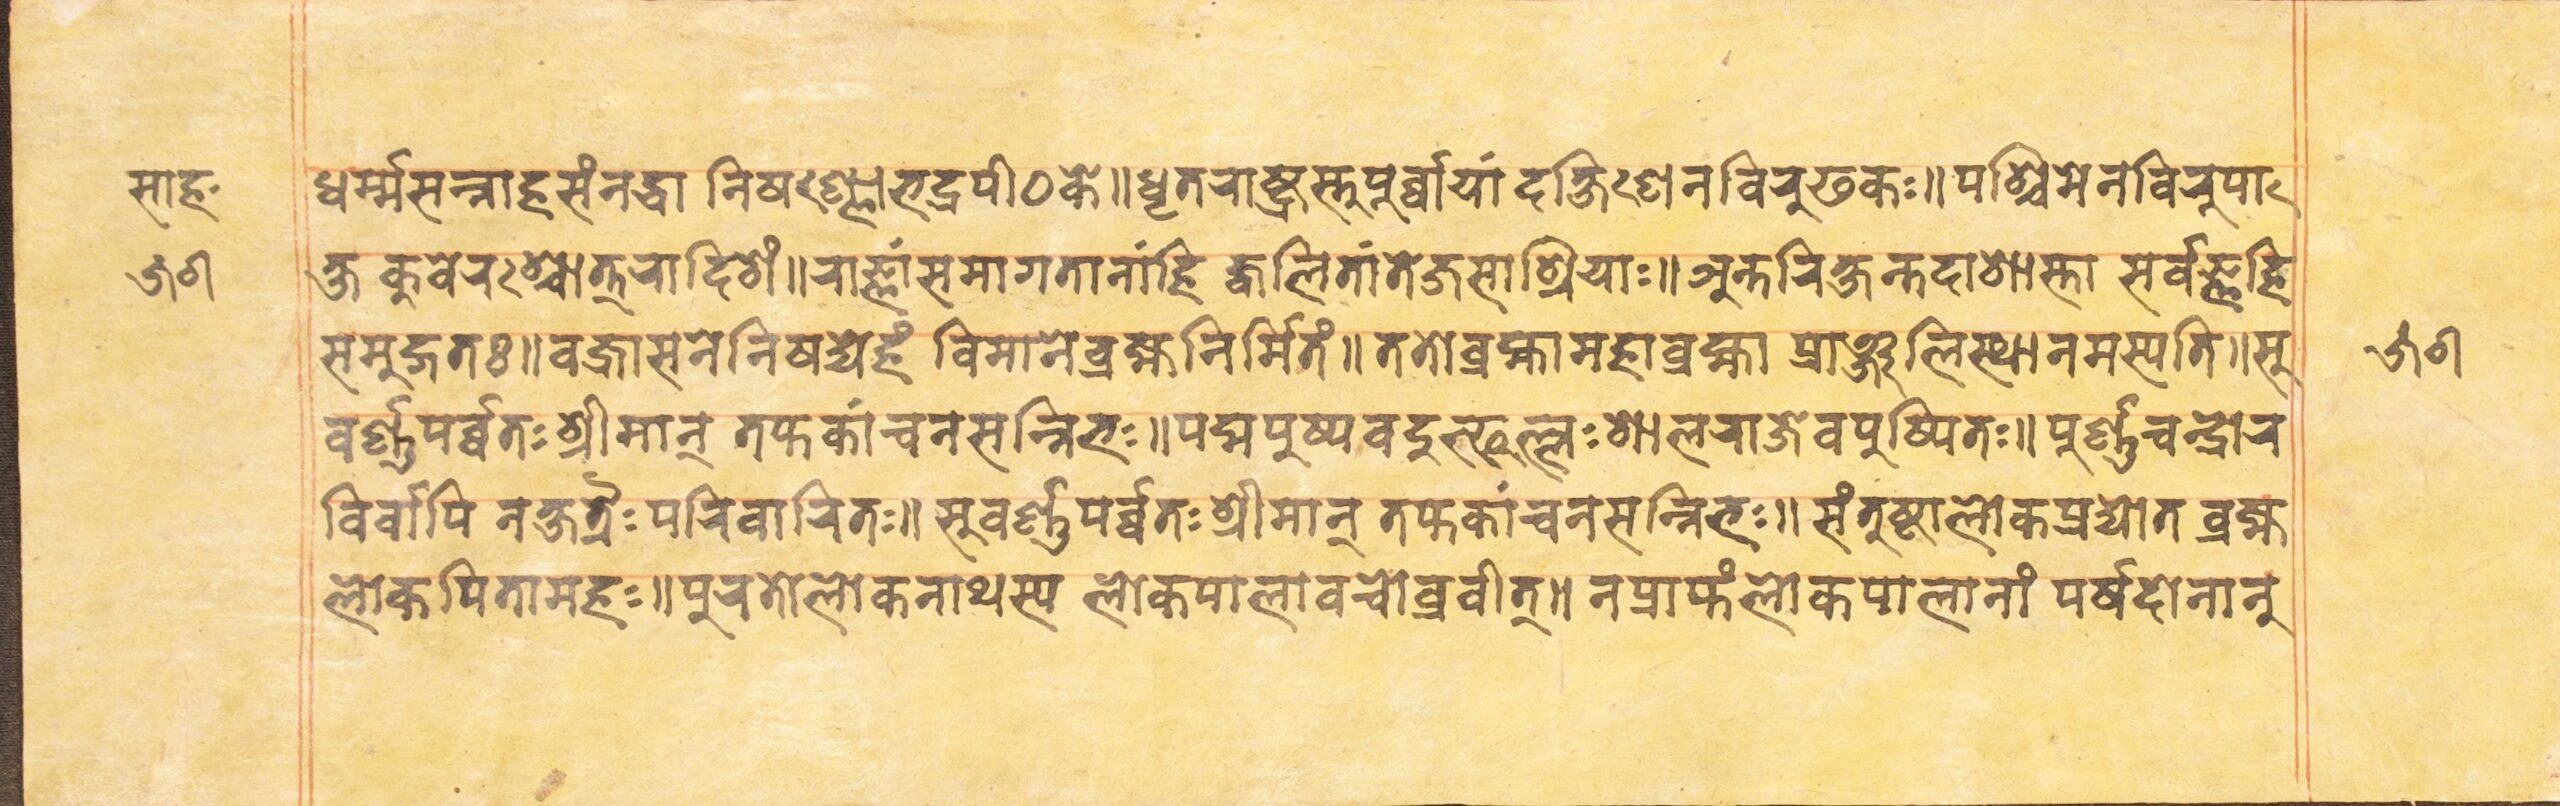 साह
धर्म्मसन्नाहसंनद्धा निषण्णोभद्रपीठके॥धृतराष्ट्रस्तुपूर्ब्बायां दक्षिणेनविरुढकः॥पश्चिमेनविरुपा
क्ष कुवेरश्चोत्तरादिशं॥राज्ञांसमागतानांहि ज्वलितांतेजसाश्रियाः॥अन्तरिक्षन्तदाशास्ता सर्वज्ञहि
समुद्गतः॥वज्रासनेनिषद्येहं विमानेब्रह्मनिर्मितं॥ततोब्रह्मामहाब्रह्मा प्राञ्जलिस्थानमस्यति॥सु
वर्ण्णपर्ब्बतःश्रीमान् तप्तकांचनसन्निभः॥पद्मपुष्पवदुत्फुल्लःशालराजेवपुष्पितः॥पुर्ण्णचन्द्रोर
विर्वापि नक्षत्रैःपरिवारितः॥सुवर्ण्णपर्ब्बतःश्रीमान् तप्तकांचनसन्निभः॥संतुष्टालोकप्रद्योत ब्रह्म
लोकपितामहः॥पुरतोलोकनाथस्य लोकपालावचोब्रवीत्॥नप्राप्तंलोकपालानां पर्षदोनानु